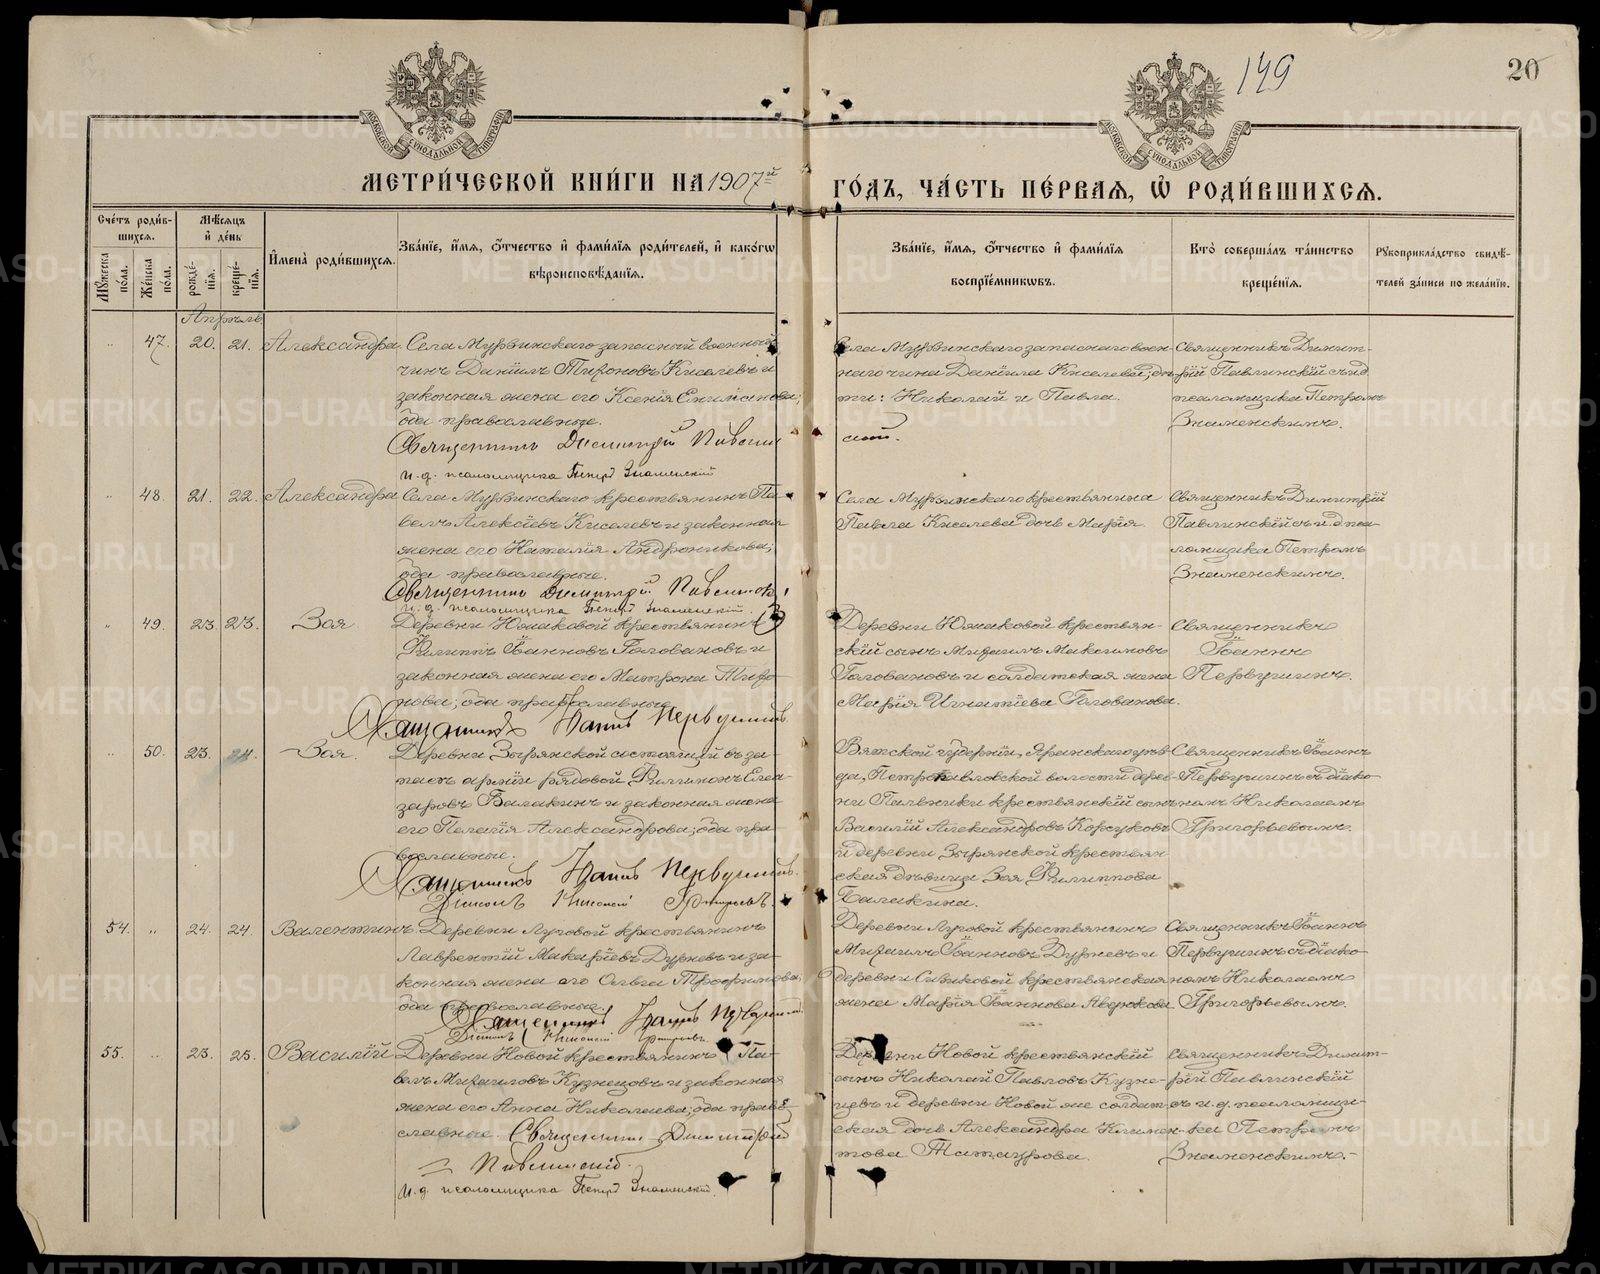 149
20
МЕТРИ́ЧЕСКОЙ КНИ́ГИ НА 1907й
ГО́ДЪ, ЧА́СТЬ ПЕ́РВАЯ, Ѽ РОДИ́ВШИХСЯ.
Сче́тъ роди́в-
шихся.
Му́жеска по́ла.
Же́нска по́ла.
Мѣ́сяцъ
и҆ де́нь
рожде́-
нїя.
креще́-
нїя.
И҆мена̀ роди́вшихся.
Зва́нїе, и҆́мя, ѻ҆́тчество и҆ фами́лїя роди́телей, и҆ како́гѡ
вѣроисповѣ́данїя.
Зва́нїе, и҆́мя, ѻ҆́тчество и҆ фами́лїя
воспрїе́мниковъ.
Кто̀ соверша́лъ та́инство
креще́нїя.
Рꙋкоприкла́дство свидѣ́-
телей за́писи по жела́нїю.
Апрѣль
" 47. 20. 21. Александра
Села Мурзинскаго запасный военный
чинъ Данїилъ Тихоновъ Киселевъ и
законная жена его Ксенїя
оба православные.
Священникъ Димитрїй Павлин
скій.
и. д. псаломщика Петръ Знаменскій
Села Мурзинскаго запаснаго воен-
наго чина Данїила Киселева дѣ
ти: Николай и Павла.
Священникъ Димит-
рїй Павлинскїй съ и д.
псаломщика Петромъ
Знаменскимъ.
" 48. 21. 22. Александра
Села Мурзинскаго крестьянинъ Па-
велъ Алексїевъ Киселевъ и законная
жена его Наталїя Андроникова;
оба православные.
Священникъ Димитрій Павлинскій
и. д. псаломщика Петръ Знаменскій.
Села Мурзинскаго крестьянина
Павла Киселева дочь Марїя.
Священникъ Димитрїй
Павлинскїй съ и. д. пса-
ломщика Петромъ
Знаменскимъ.
" 49. 23. 23. Зоя
Деревни Южаковой крестьянинъ
Филиппъ Іоанновъ Головановъ и
законная жена его Матрона Тихо-
нова; оба православные
Священникъ Іоаннъ Первушинъ
Деревни Южаковой крестьян-
скїй сынъ Михаилъ Максимовъ
Головановъ и солдатская жена
Марїя Игнатїева Голованова.
Священникъ
Іоаннъ
Первушинъ.
" 50. 23. 24. Зоя.
Деревни Зырянской состоящїй въ за-
пасѣ армїи рядовой Филимонъ Елеа-
заровъ Балакинъ и законная жена
его Пелагїя Александрова; оба пра-
вославные.
Священникъ Іоаннъ Первушинъ.
Діаконъ Николай Григорьевъ.
Вятской губернїи, Яранскаго уѣз-
да, Петропавловской волости дерев-
ни крестьянскїй сынъ
Василїй Александровъ Корсуковъ
и деревни Зырянской крестьян-
ская дѣвица Зоя Филиппова
Балакина.
Священникъ Іоаннъ
Первушинъ съ дїако-
номъ Николаемъ
Григорьевымъ.
54. " 24. 24. Валентинъ.
Деревни Луговой крестьянинъ
Лаврентїй Макарїевъ Дурневъ и за-
конная жена его Ольга Трофимова;
оба православные.
Священникъ Іоаннъ Первушинъ
Діаконъ Николай Григорьевъ.
Деревни Луговой крестьянинъ
Михаилъ Іоанновъ Дурневъ и
деревни Сизиковой крестьянская
жена Марїя Іоаннова Аверкова
Священникъ Іоаннъ
Первушинъ съ дїако-
номъ Николаемъ
Григорьевымъ.
55. " 23. 25. Василїй
Деревни Новой крестьянинъ Па-
велъ Михаиловъ Кузнецовъ и законная
жена его Анна Николаева; оба право-
славные. Священникъ Димитрій
Павлинскій.
и. д. псаломщика Петръ Знаменскій.
Деревни Новой крестьянскїй
сынъ Николай Павловъ Кузне-
цовъ и деревни Новой же солдат-
ская дочь Александра Климен-
това Татаурова.
Священникъ Димит-
рїй Павлинскїй
съ и. д. псаломщи-
ка Петромъ
Знаменскимъ.-
METRIKI.GASO-URAL.RU